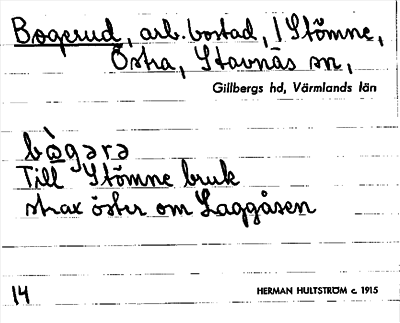 Bogerud, arb. bostad, / Stömne,
Östra, Stavnäs sn,
Gillbergs hd, Värmlands län
bὼgərə
Till Stömne bruk
strax öster om Laggåsen
14
HERMAN HULTSTRÖM c. 1915